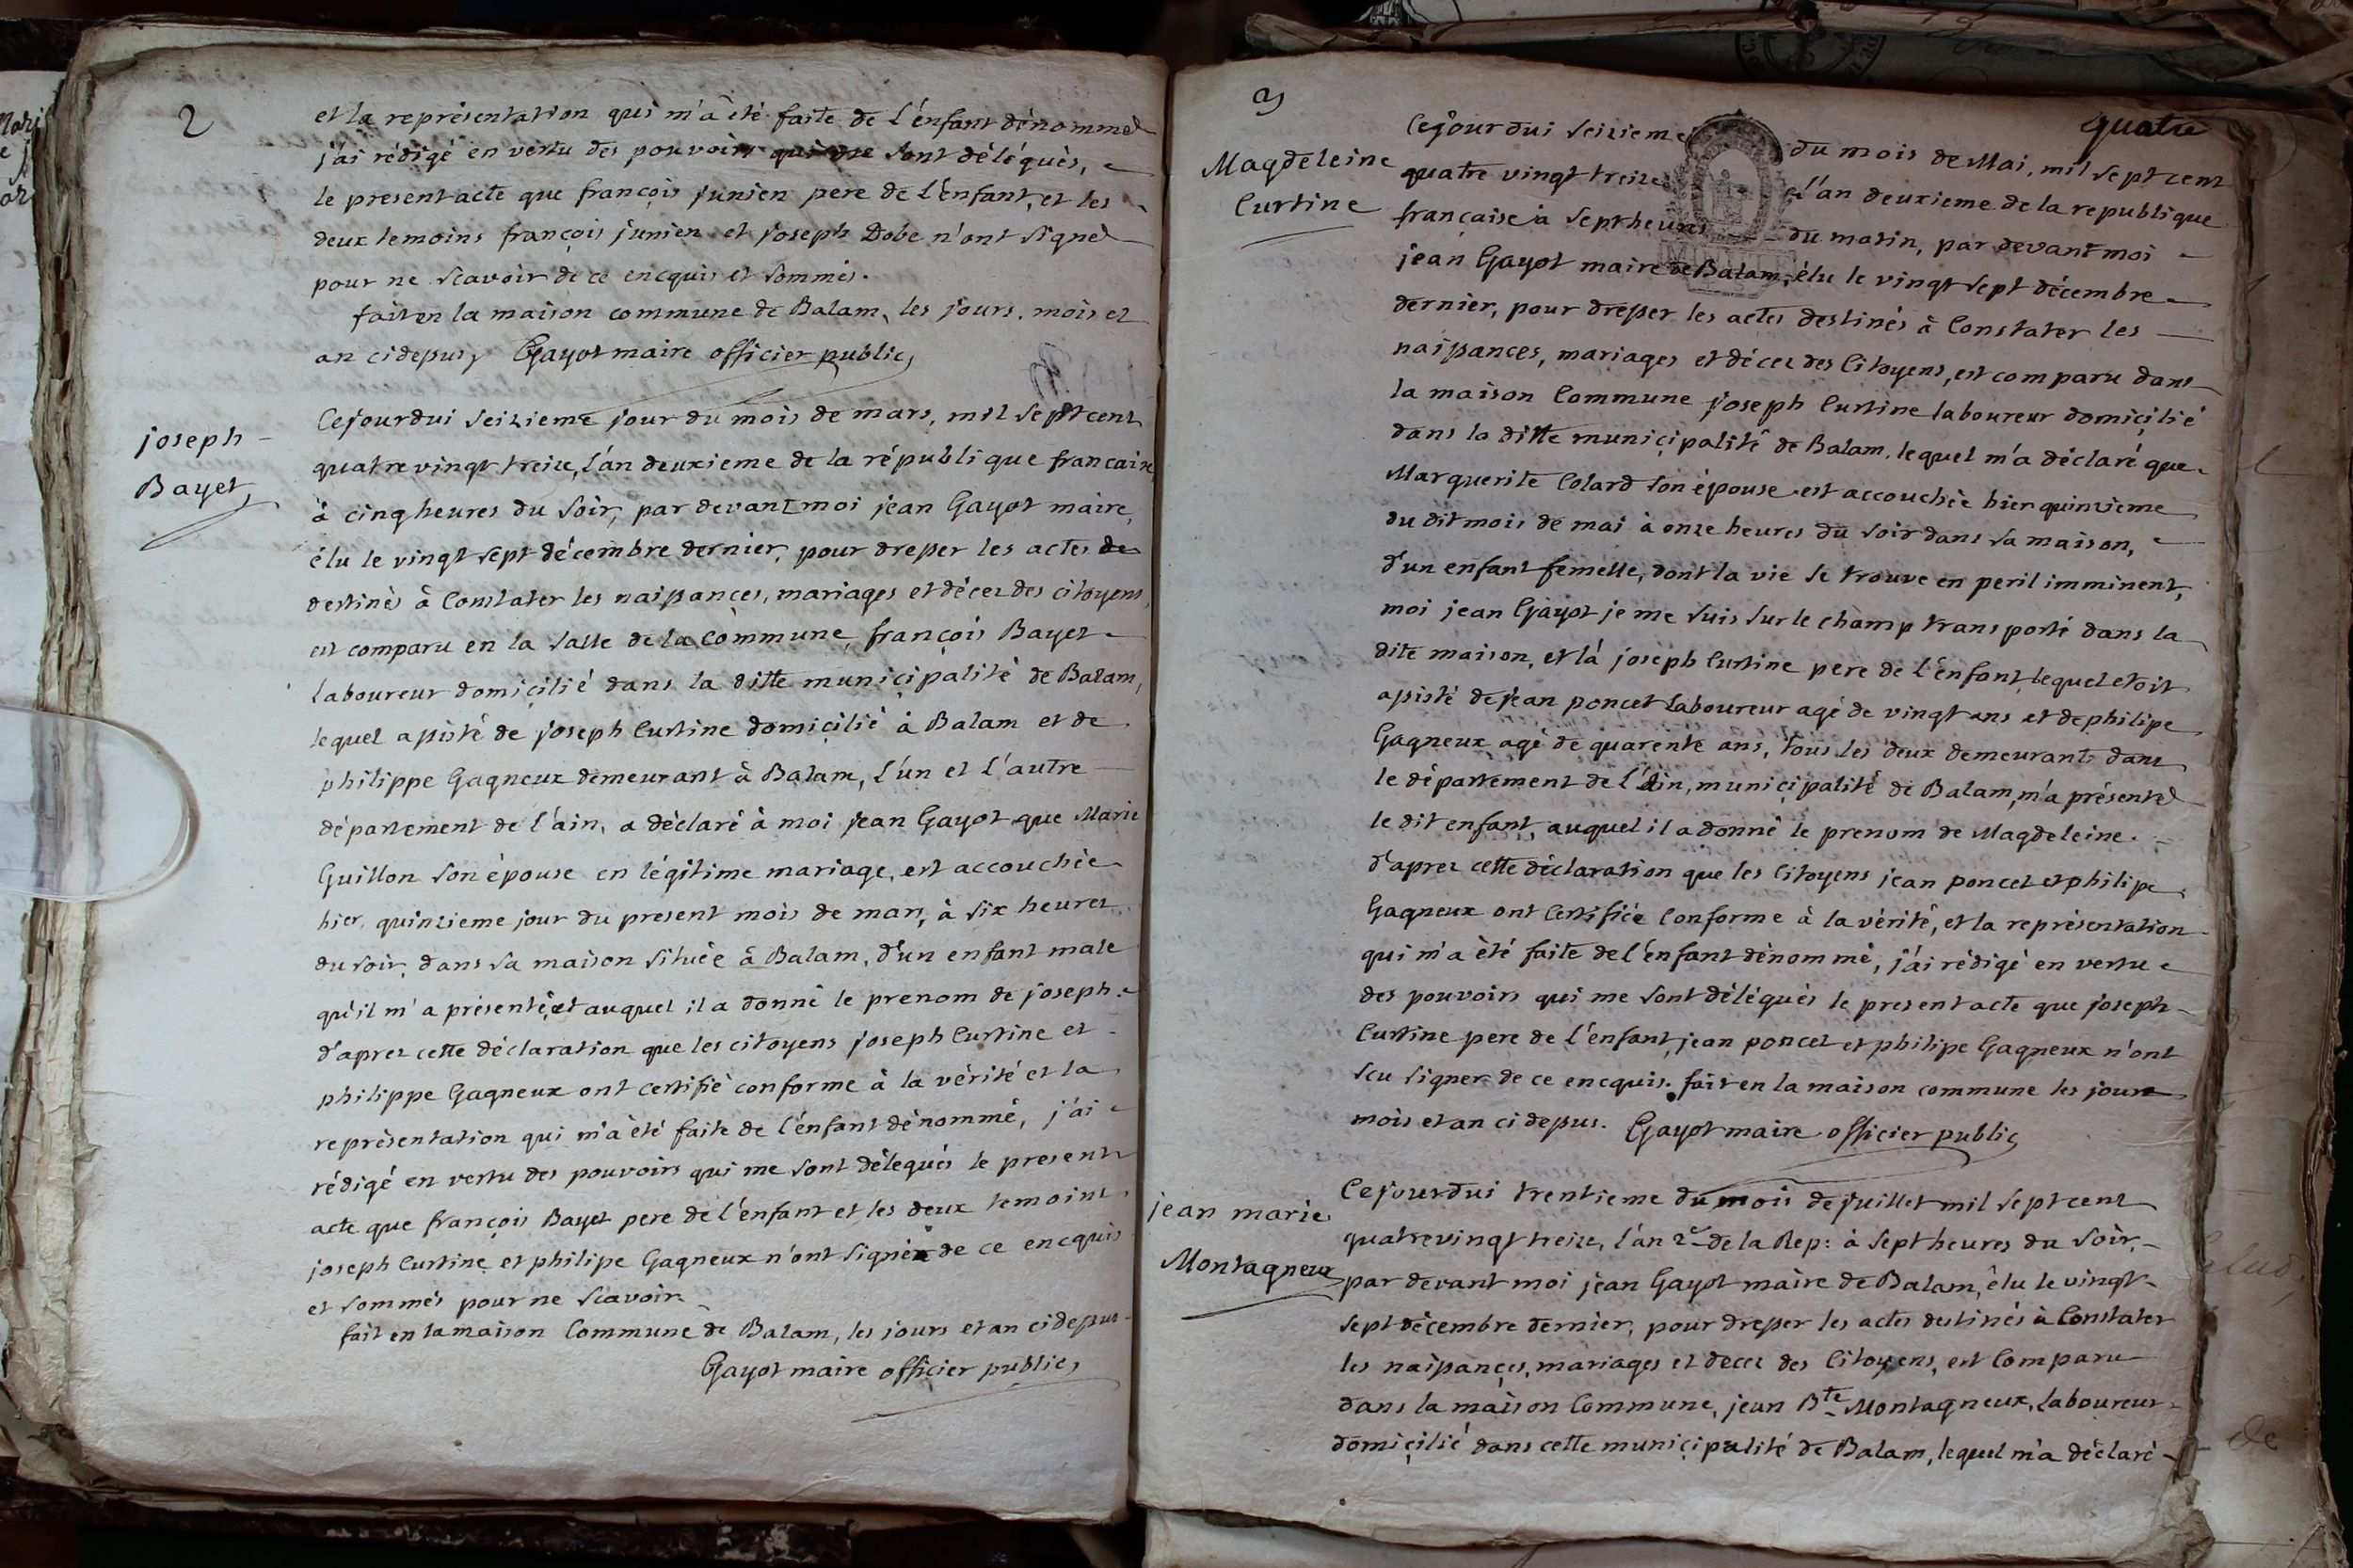 2
et la représentation qui m'a été faite de l'énfant dénommé
j'ai rédigé en vertu des pouvoirs qui me sont délégués,
le present acte que françois junien pere de l'énfant, et les
deux temoins françois junien et joseph Dobe n'ont signé
pour ne scavoir de ce encquis et sommés.
fait en la maison commune de Balam, les jours, mois et
an cidepus, Gayot maire officier public,
joseph
Bayet
Cejourdui seizieme jour du mois de mars, mil sept cent
quatre vingt treize, l'an deuxieme de la république francaise
à cinq heures du soir, par devant moi jean Gayot maire,
élu le vingt sept décembre dernier, pour dresser les actes de
destinés à Constater les naissances, mariages et décez des citoyens,
est comparu en la salle de la Commune, françois Bayet
laboureur domicilié dans la ditte municipalité de Balam,
lequel assisté de joseph Curtine domicilié à Balam et de
philippe Gagneux demeurant à Balam, l'un et l'autre
département de l'ain, a déclaré à moi jean Gayot que Marie
Guillon son épouse en légitime mariage, est accouchée
hier, quinzieme jour du present mois de mars, à six heures
du soir, dans sa maison située à Balam, d'un enfant male
qu'il m'a présenté, et auquel il a donné le prenom de joseph.
d'aprez cette déclaration que les citoyens joseph Curtine et
philippe Gagneux ont certifié conforme à la vérité et la
représentation qui m'a été faite de l'énfant dénommé, j'ai
rédigé en vertu des pouvoirs qui me sont délegués le present
acte que françois Bayet pere de l'énfant et les deux temoins
joseph Curtine et philipe Gagneux n'ont signé de ce encquis
et sommés pour ne scavoir
fait en la maison Commune de Balam, les jours et an cidepus
Gayot maire officier public,
3
quatre
Magdeleine
Curtine
Cejourdui seizieme du mois de Mai, mil sept cent
quatre vingt treize l'an deuxieme de la republique
française à sept heures du matin, par devant moi
jean Gayot maire de Balam, élu le vingt sept décembre
dernier, pour dresser les actes destinés à Constater les
naissances, mariages et décez des Citoyens, est comparu dans
la maison Commune joseph Curtine laboureur domicilié
dans la ditte municipalité de Balam, lequel m'a déclaré que
Marguerite Colard son épouse est accouchée hier quinzieme
du dit mois de mai à onze heures du soir dans sa maison,
d'un enfant femelle, dont la vie se trouve en peril imminent,
moi jean Gayot je me suis sur le champ transporté dans la
dite maison, et là joseph Curtine pere de l'énfant, lequel etoit
assisté de jean poncet Laboureur agé de vingt ans et de philipe
Gagneux agé de quarente ans, tous les deux demeurants dans
le département de l'ain, municipalité de Balam, m'a présenté
le dit enfant, auquel il a donné le prenom de Magdeleine.
d'aprez cette déclaration que les Citoyens jean poncet et philipe
Gagneux ont Certifiée Conforme à la vérité, et la représentation
qui m'a été faite de l'énfant dénommé, j'ai rédigé en vertu
des pouvoirs qui me sont délégués le present acte que joseph
Curtine pere de l'énfant, jean poncet et philipe Gagneux n'ont
scu signer de ce encquis. fait en la maison commune les jours
mois et an cidepus. Gayot maire officier public,
jean marie
Montagneux
Cejourdui trentieme du mois de juillet mil sept cent
quatre vingt treize, l'an 2e de la Rep: à sept heures du soir,
par devant moi jean Gayot maire de Balam, élu le vingt
sept décembre dernier, pour dresser les actes destinés à Constater
les naissances, mariages et decez des Citoyens, est Comparu
dans la maison Commune, jean Bte Montagneux, Laboureur
domicilié dans cette municipalité de Balam, lequel m'a déclaré